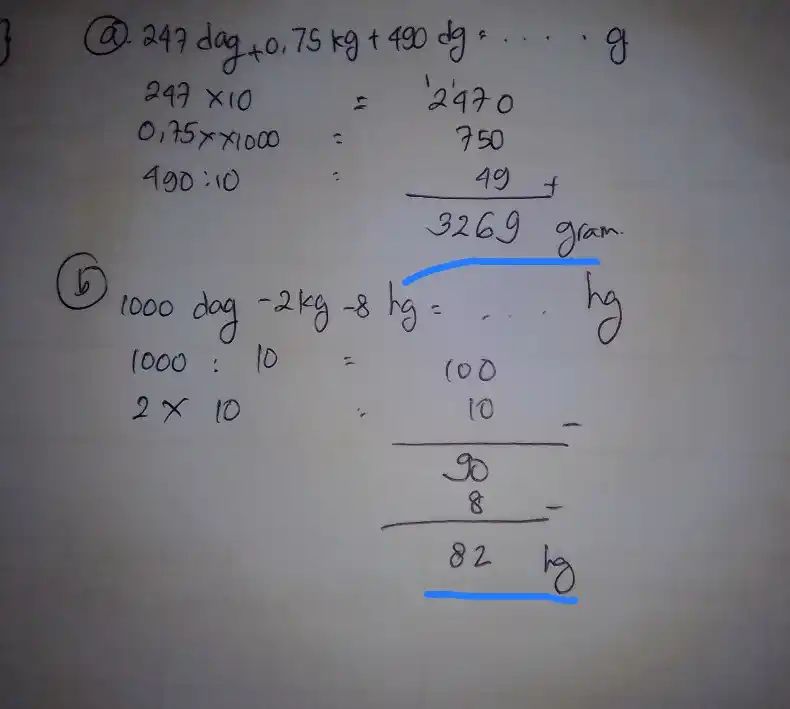 } a. 247 dag + 0,75 kg + 490 dg = ..... g
247 x 10 = 2470
0,75 x x 1000 = 750
490 : 10 = 49 +
3269 gram.
b 1000 dag - 2 kg - 8 hg = .... hg
1000 : 10 = 100
2 x 10 = 10 -
90
8 -
82 hg